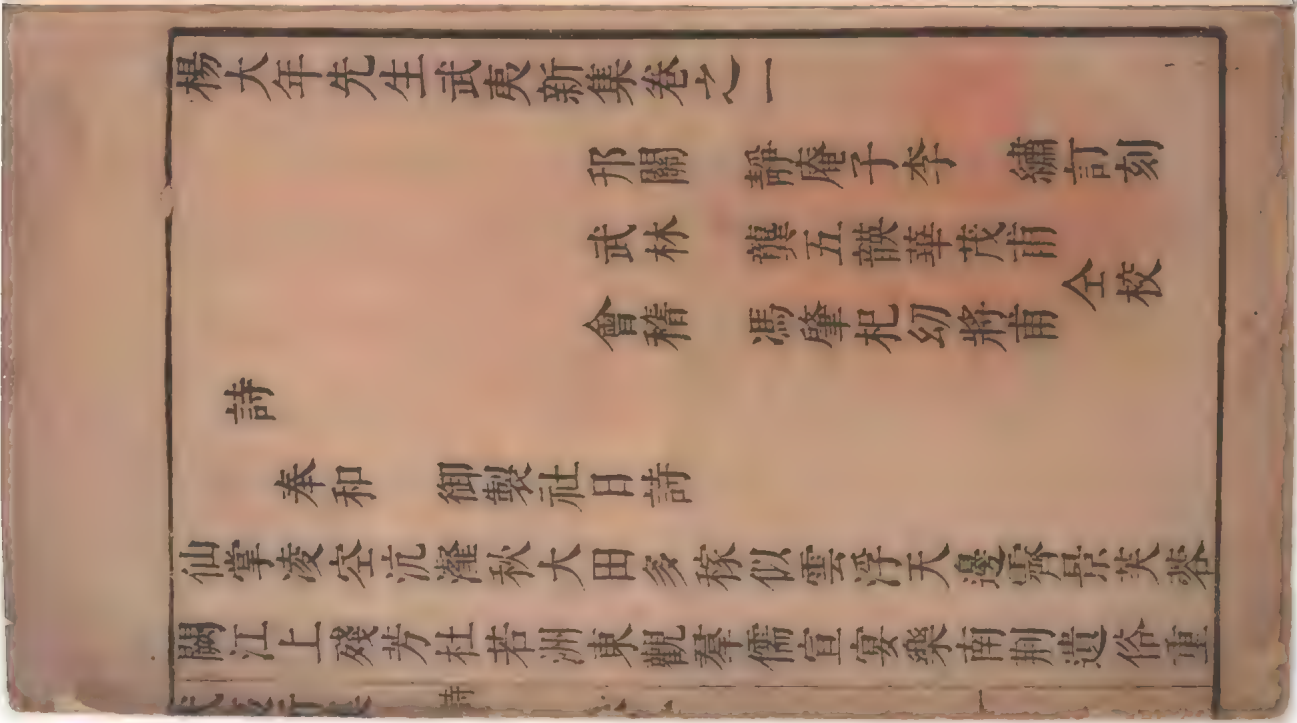 楊大年先生武夷新集卷之一
邗關 靜庵子李 繡訂刻
武林 龔五韺華茂甫
仝校
會稽 馮肇杞幼將甫
詩
奉和 御製社日詩
仙掌凌空沆瀣秋大田多稼似雲浮天邊霽景芙蓉
闕江上殘芳杜若洲東觀羣儒宣宴樂南荆遺俗重
詩